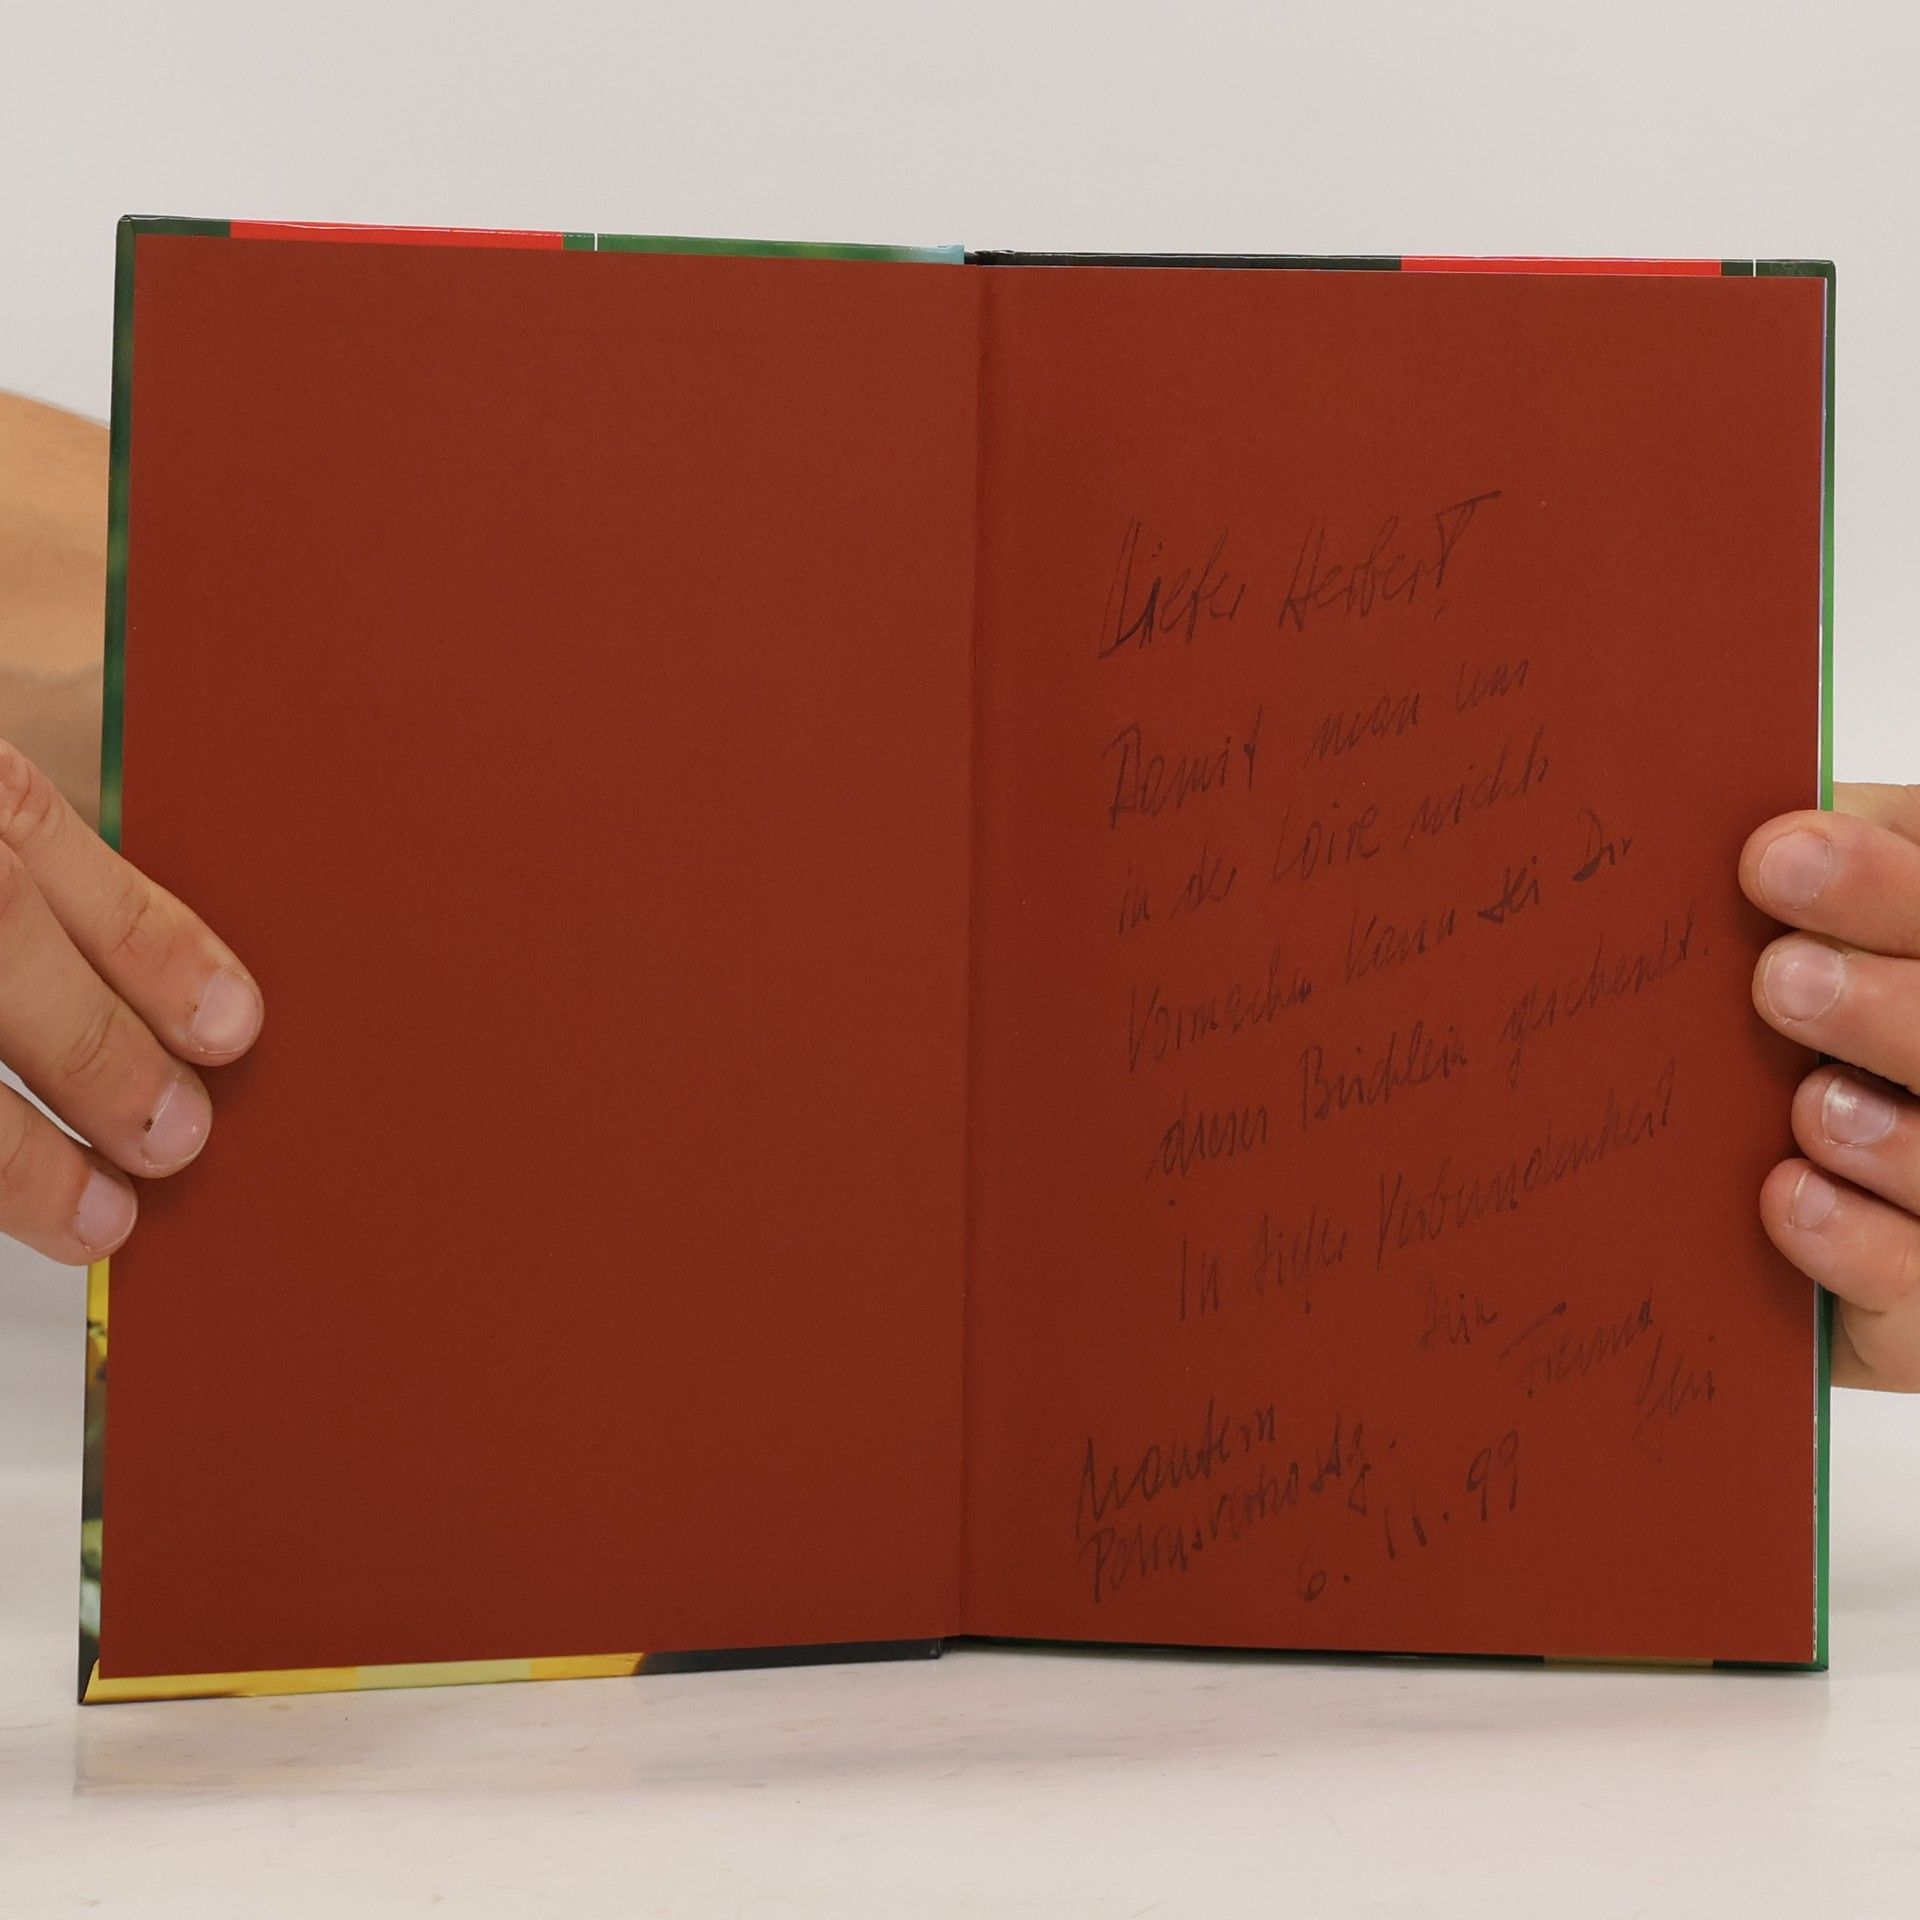 Lieber Herbert!
Damit man uns
in der Loire nichts
Vormachen kann sei Dir
dieses Büchlein geschenkt.
In tiefer Verbundenheit
Dein
Freund
Mautern
6. 11. 99